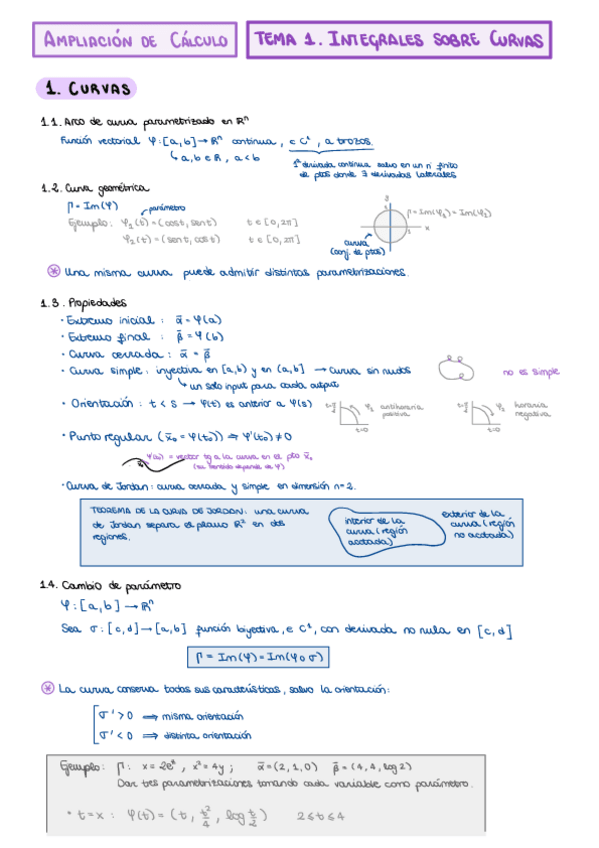 AMPLIACIÓN DE CÁLCULO
TEMA 1. INTEGRALES SOBRE CURVAS
1. CURVAS
1.1. Arco de curva parametrizado en Rⁿ
Función vectorial φ:[a,b]→Rⁿ continua, ∈ C¹, a trozos.
↳ a,b ∈ R, a < b
1ª derivada continua salvo en un nº finito
de ptos donde ∃ derivadas laterales
1.2. Curva geométrica
Γ = Im(φ)
parámetro
Ejemplo: φ₁(t) = (cost, sent) t ∈ [0, 2π]
φ₂(t) = (sent, cost) t ∈ [0, 2π]
y
x
Γ = Im(φ₁) = Im(φ₂)
curva
(conj. de ptos)
* Una misma curva puede admitir distintas parametrizaciones.
1.3. Propiedades
· Extremo inicial: ᾱ = φ(a)
· Extremo final: β̄ = φ(b)
· Curva cerrada: ᾱ = β̄
· Curva simple: inyectiva en [a,b) y en (a,b] → curva sin nudos
no es simple
↳ un solo input para cada output
· Orientación: t < s → φ(t) es anterior a φ(s)
φ₁ antihoraria
positiva
t=0
φ₂ horaria
negativa
t=0
· Punto regular (x̄₀ = φ(t₀)) ⇒ φ'(t₀) ≠ 0
φ'(t₀) = vector tg a la curva en el pto x̄₀
(su sentido depende de φ)
· Curva de Jordan: curva cerrada y simple en dimensión n=2.
TEOREMA DE LA CURVA DE JORDAN: una curva
de Jordan separa el plano R² en dos
regiones.
interior de la
curva (región
acotada)
exterior de la
curva (región
no acotada)
1.4. Cambio de parámetro
φ:[a,b]→Rⁿ
Sea σ:[c,d]→[a,b] función biyectiva, ∈ C¹, con derivada no nula en [c,d]
Γ = Im(φ) = Im(φ∘σ)
* La curva conserva todas sus características, salvo la orientación:
σ' > 0 ⇒ misma orientación
σ' < 0 ⇒ distinta orientación
Ejemplo: Γ: x = 2eᶻ, x² = 4y; ᾱ = (2,1,0) β̄ = (4,4,log2)
Dar tres parametrizaciones tomando cada variable como parámetro.
· t=x: φ(t) = (t, t²/4, log t/2) 2 ≤ t ≤ 4